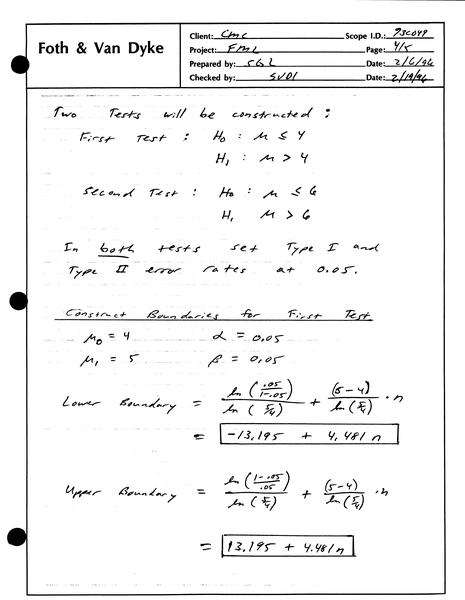 Foth & Van Dyke
Client: CMC Scope I.D.: 93C049
Project: FML Page: 4/5
Prepared by: SGL Date: 2/6/96
Checked by: SVD1 Date: 2/19/96
Two Tests will be constructed :
First Test : H₀ : μ ≤ 4
H₁ : μ > 4
Second Test : H₀ : μ ≤ 6
H₁ μ > 6
In both tests set Type I and
Type II error rates at 0.05.
Construct Boundaries for First Test
μ₀ = 4 α = 0.05
μ₁ = 5 β = 0.05
Lower Boundary = ln(.05/1-.05)/ln(5/4) + (5-4)/ln(5/4) · n
= -13.195 + 4.481 n
Upper Boundary = ln(1-.05/.05)/ln(5/4) + (5-4)/ln(5/4) · n
= 13.195 + 4.481 n